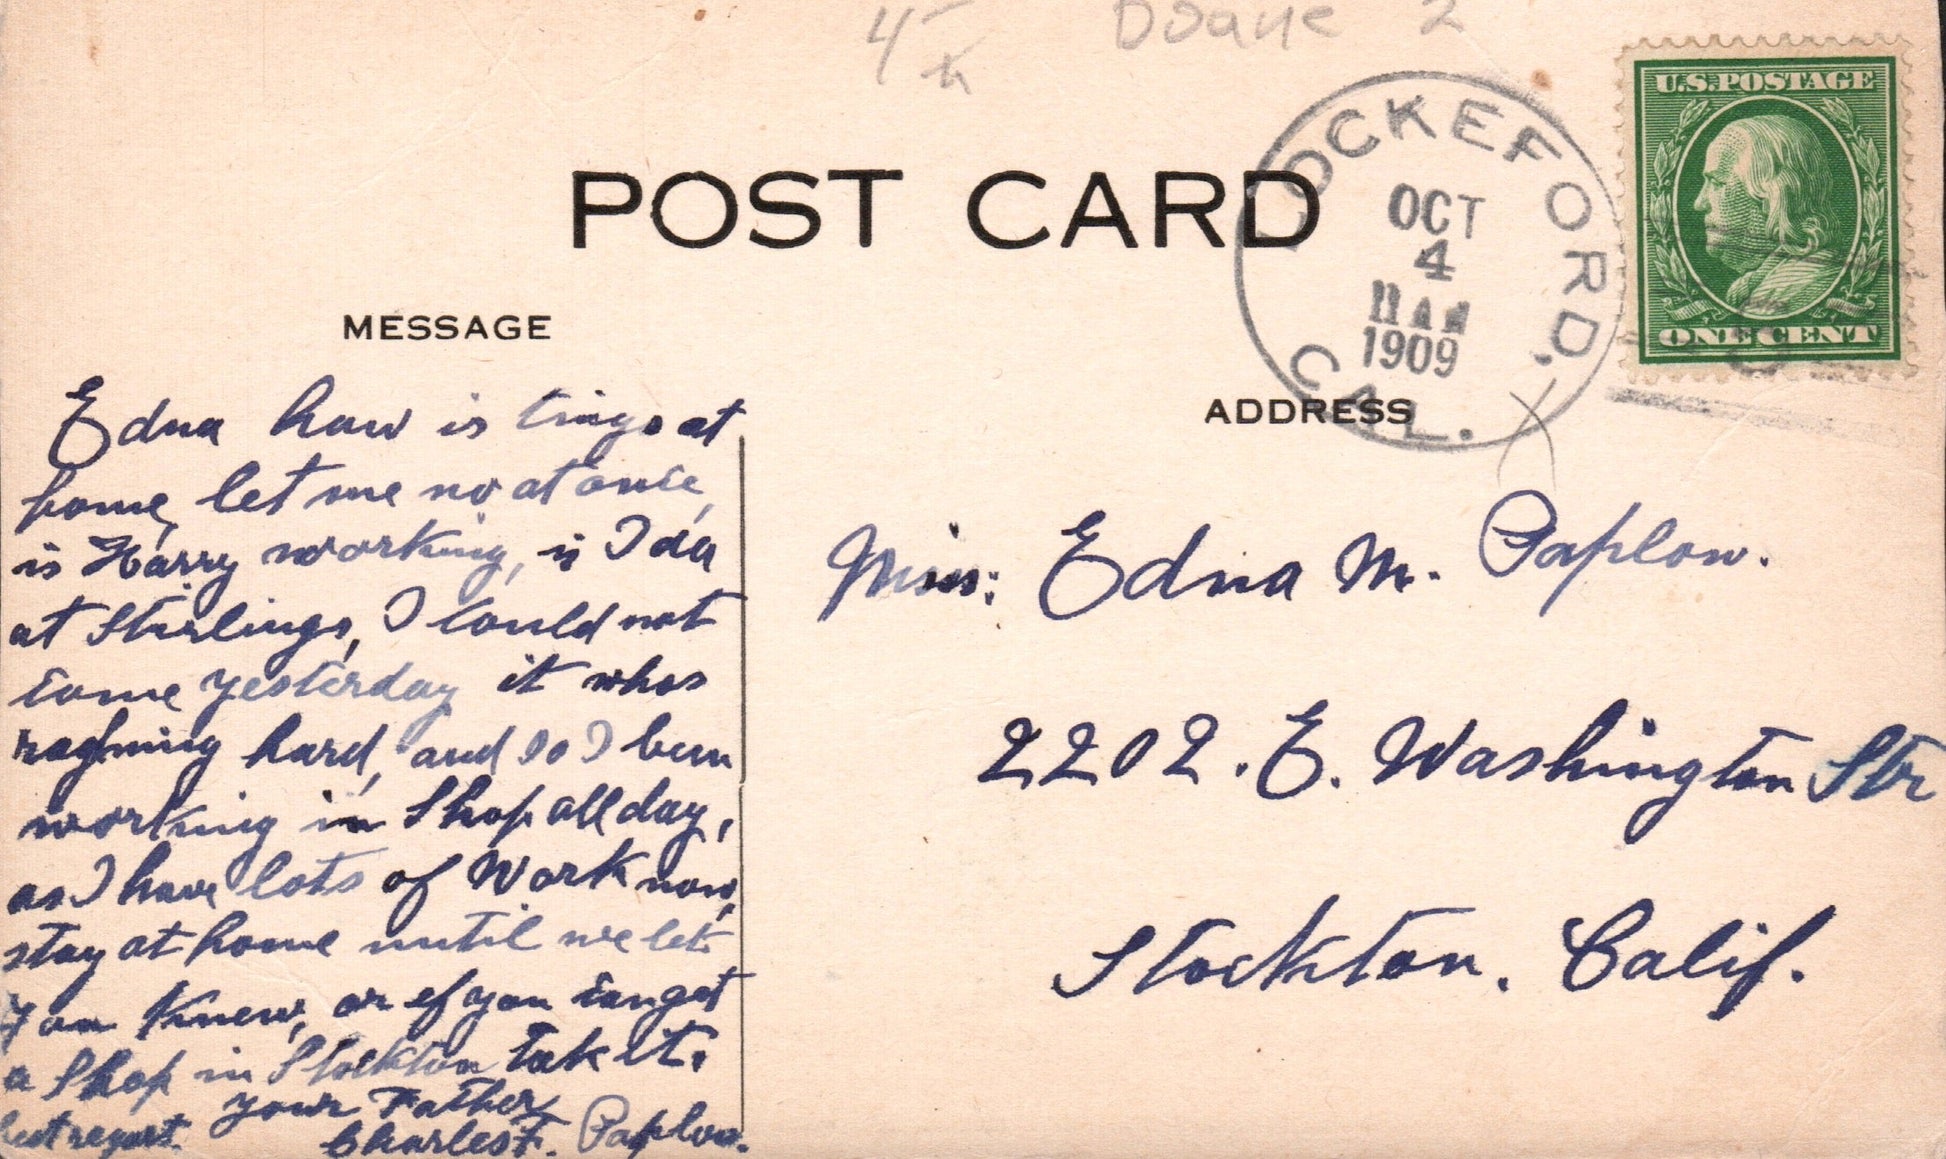 4th Doane 2
U.S. POSTAGE
ONE CENT
LOCKEFORD,
CAL.
OCT
4
11 AM
1909
POST CARD
MESSAGE
Edna how is tings at
home, let me no at once,
is Harry working, is Ida
at Stirlings, I could not
come yesterday it whas
hard, and so I been
working in Shop all day,
as I have lots of Work now,
stay at home until we let
you Knew, or ef you can get
a Shop in Stockton tak it.
best regart. your Father
Charles F. Paplow.
ADDRESS
Miss: Edna M. Paplow.
2202. E. Washington Str
Stockton. Calif.